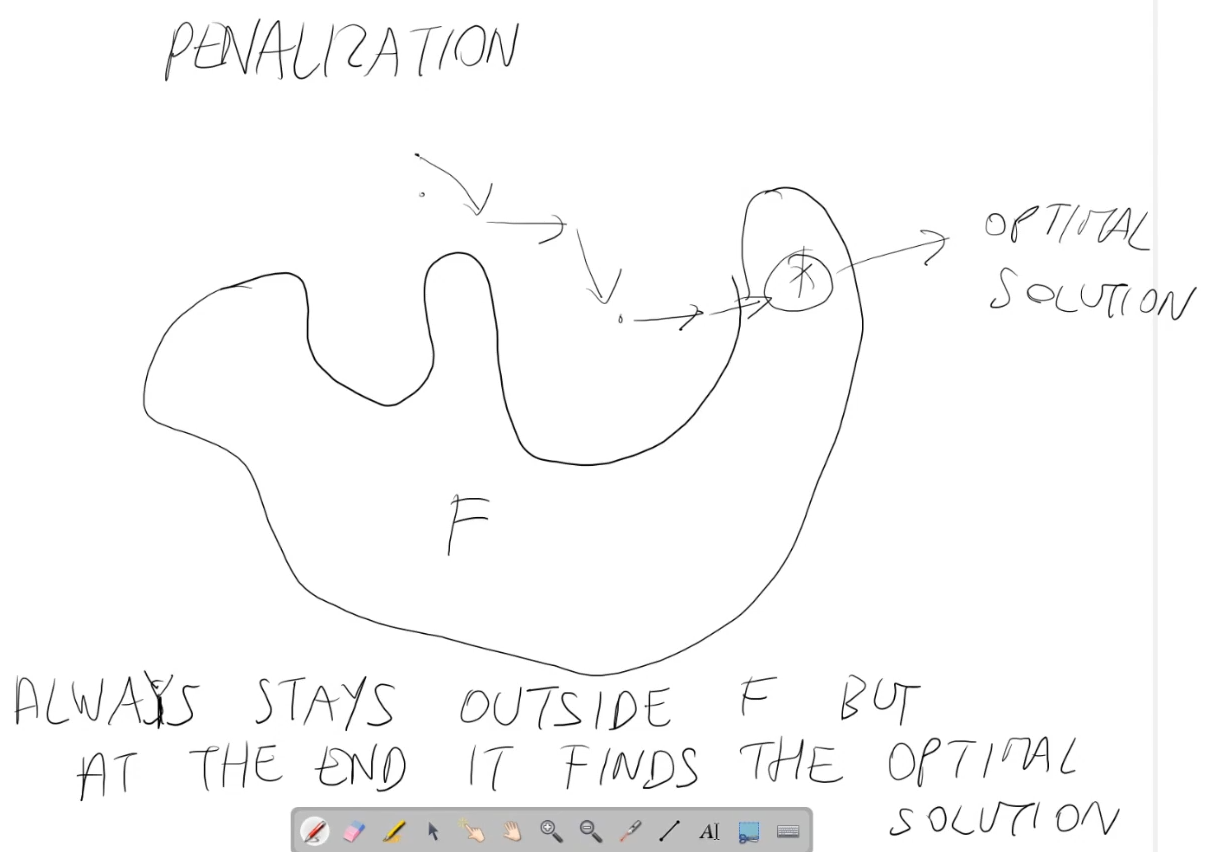 PENALIZATION
OPTIMAL
SOLUTION
*
F
ALWAYS STAYS OUTSIDE F BUT
AT THE END IT FINDS THE OPTIMAL
SOLUTION
AI